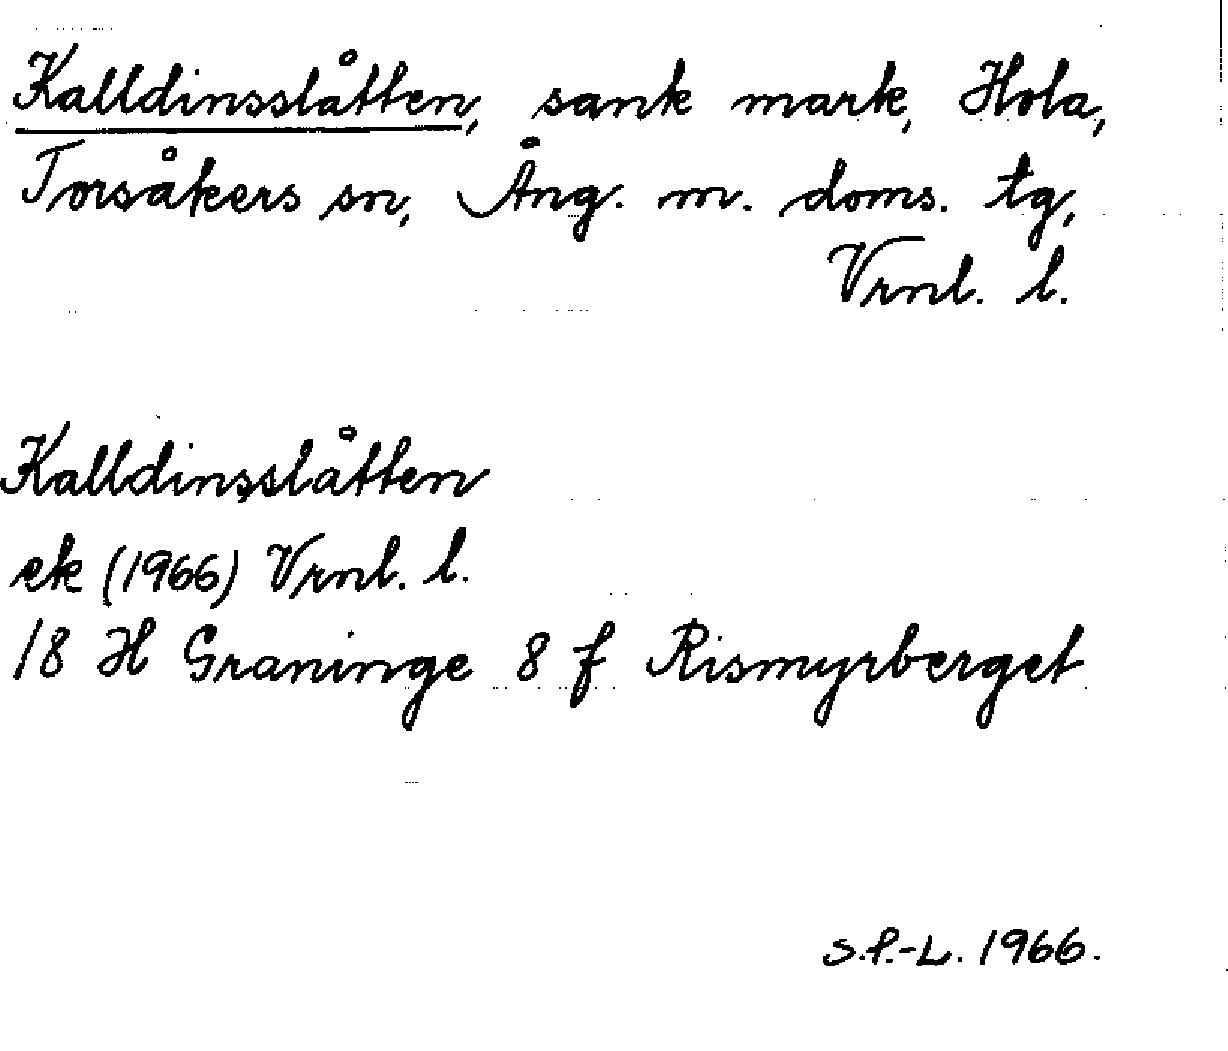 Kalldinsslåtten, sank mark, Hola,
Torsåkers sn, Ång. m. doms. tg,
Vrnl. l.
Kalldinsslåtten
ek (1966) Vrnl. l.
18 H Graninge 8 f Rismyrberget
S.P.-L. 1966.